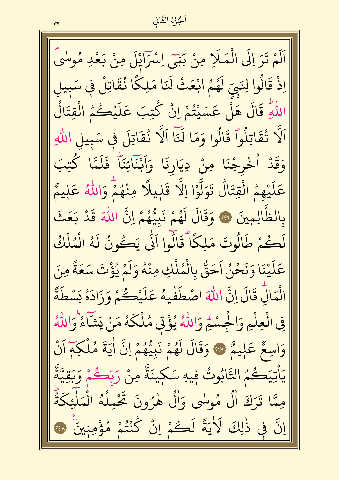 اَلْجُزْءُ الثَّانِي
اَلَمْ تَرَ اِلَى الْمَلَاِ مِنْ بَنٖٓي اِسْرَٓائٖلَ مِنْ بَعْدِ مُوسٰىۘ
اِذْ قَالُوا لِنَبِيٍّ لَهُمُ ابْعَثْ لَنَا مَلِكًا نُقَاتِلْ فٖي سَبٖيلِ
اللّٰهِؕ قَالَ هَلْ عَسَيْتُمْ اِنْ كُتِبَ عَلَيْكُمُ الْقِتَالُ
اَلَّا تُقَاتِلُواؕ قَالُوا وَمَا لَنَٓا اَلَّا نُقَاتِلَ فٖي سَبٖيلِ اللّٰهِ
وَقَدْ اُخْرِجْنَا مِنْ دِيَارِنَا وَاَبْنَٓائِنَاؕ فَلَمَّا كُتِبَ
عَلَيْهِمُ الْقِتَالُ تَوَلَّوْا اِلَّا قَلٖيلًا مِنْهُمْؕ وَاللّٰهُ عَلٖيمٌ
بِالظَّالِمٖينَ ﴿٢٤٦﴾ وَقَالَ لَهُمْ نَبِيُّهُمْ اِنَّ اللّٰهَ قَدْ بَعَثَ
لَكُمْ طَالُوتَ مَلِكًاؕ قَالُٓوا اَنّٰى يَكُونُ لَهُ الْمُلْكُ
عَلَيْنَا وَنَحْنُ اَحَقُّ بِالْمُلْكِ مِنْهُ وَلَمْ يُؤْتَ سَعَةً مِنَ
الْمَالِؕ قَالَ اِنَّ اللّٰهَ اصْطَفٰيهُ عَلَيْكُمْ وَزَادَهُ بَسْطَةً
فِي الْعِلْمِ وَالْجِسْمِؕ وَاللّٰهُ يُؤْتٖي مُلْكَهُ مَنْ يَشَٓاءُؕ وَاللّٰهُ
وَاسِعٌ عَلٖيمٌ ﴿٢٤٧﴾ وَقَالَ لَهُمْ نَبِيُّهُمْ اِنَّ اٰيَةَ مُلْكِهٖٓ اَنْ
يَاْتِيَكُمُ التَّابُوتُ فٖيهِ سَكٖينَةٌ مِنْ رَبِّكُمْ وَبَقِيَّةٌ
مِمَّا تَرَكَ اٰلُ مُوسٰى وَاٰلُ هٰرُونَ تَحْمِلُهُ الْمَلٰٓئِكَةُؕ
اِنَّ فٖي ذٰلِكَ لَاٰيَةً لَكُمْ اِنْ كُنْتُمْ مُؤْمِنٖينَ ﴿٢٤٨﴾